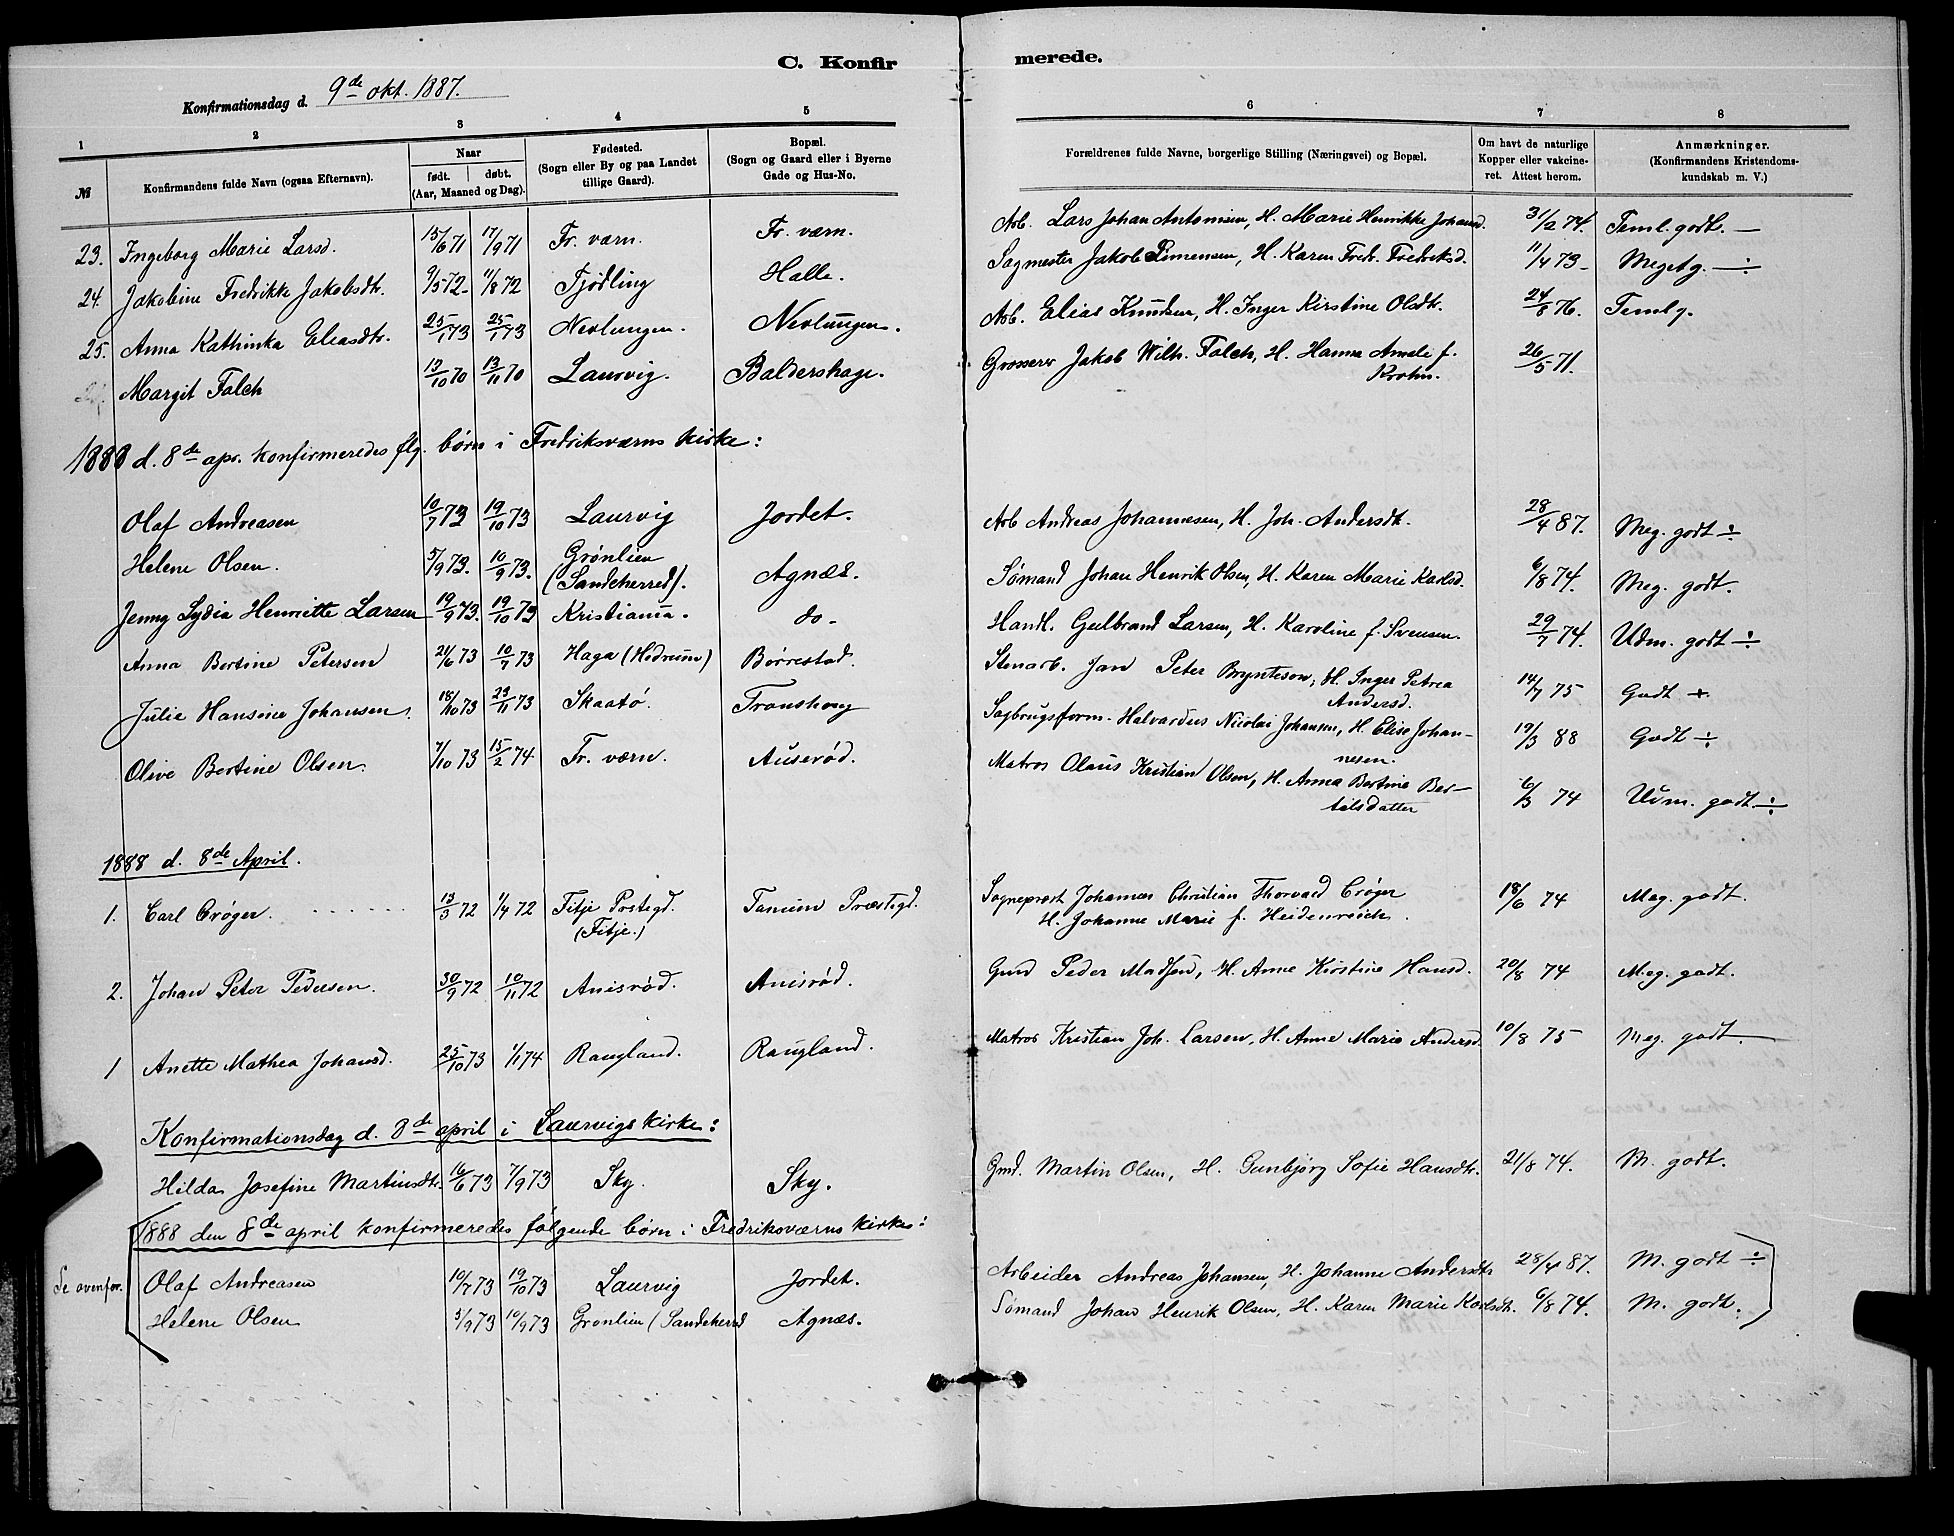 C. Konfirmerede.
Konfirmationsdag d. 9de okt. 1887.
1 2 3 4 5 6 7 8
№ Konfirmandens fulde Navn (ogsaa Efternavn). Naar født. døbt. (Aar, Maaned og Dag). Fødested. (Sogn eller By og paa Landet tillige Gaard). Bopæl. (Sogn og Gaard eller i Byerne Gade og Hus-No. Forældrenes fulde Navne, borgerlige Stilling (Næringsvei) og Bopæl. Om havt de naturlige Kopper eller vakcineret. Attest herom. Anmærkninger. (Konfirmandens Kristendomskundskab m. V.)
23. Ingeborg Marie Larsd. 15/6 71 17/9 71 Fr. værn. Fr. værn. Arb. Lars Johan Antonisen, H. Marie Henrikke Johansd. 31/2 74. Teml. godt. —
24. Jakobine Fredrikke Jakobsdtr. 9/5 72 11/8 72 Tjødling Halle. Sagmester Jakob Simensen, H. Karen Fredr. Fredriksd. 11/4 73 Meget g. ÷
25. Anna Kathinka Eliasdtr. 25/1 73 25/1 73 Nevlungen. Nevlungen. Arb. Elias Knudsen, H. Inger Kirstine Olsdtr. 24/8 76. Teml g.
Margit Falch 13/10 70 13/11 70 Laurvig. Baldershage. Grosserer Jakob Wilh. Falch, H. Hanna Amali f. Krohn. 26/5 71.
1888 d. 8de apr. konfirmeredes flg. børn i Fredriksværns kirke:
Olaf Andreasen 10/7 73 19/10 73 Laurvig Jordet. Arb Andreas Johannesen, H. Joh. Andersdt. 28/4 87. Meg. godt ÷
Helene Olsen. 5/9 73. 10/9 73. Grønlien (Sandeherred). Agnæs. Sømand Johan Henrik Olsen, H. Karen Marie Karlsd. 6/8 74. Meg. godt.
Jenny Lydia Henriette Larsen 19/9 73. 19/10 73 Kristiania. do. Handl. Gulbrand Larsen, H. Karoline f. Svensen. 29/7 74. Udm. godt ÷
Anna Bertine Petersen 21/6 73 10/7 73 Haga (Hedrum) Børrestad. Stenarb. Jan Peter Bryntesen, H. Inger Petrea Andersd. 14/7 75 Godt +
Julie Hansine Johansen. 18/10 73 23/11 73 Skaatø. Fronshoug Sagbrugsform. Halvardus Nicolai Johansen, H. Elise Johannesen. 19/3 88 Godt ÷
Olive Bertine Olsen. 7/10 73 15/2 74 Fr. værn. Auserød. Matros Olaus Kristian Olsen, H. Anna Bertine Bertilsdatter 6/3 74 Udm. godt. ÷
1888 d. 8de April.
1. Carl Crøger. 13/3 72 1/4 72 Fitje Prstegd. (Fitje.) Tanum Præstegd. Sogneprest Johannes Christian Thorvald Crøger H. Johanne Marie f. Heidenreich. 18/6 74 Meg. godt.
2. Johan Peter Pedersen. 30/9 72 10/11 72 Anisrød. Anisrød. Gmd Peder Madsen, H. Anne Kirstine Hansd. 20/8 74 Meg. godt.
1 Anette Mathea Johansd. 25/10 73 1/1 74 Raugland. Raugland. Matros Kristian Joh. Larsen, H. Anne Marie Andersd. 10/8 75 Meg. godt.
Konfirmationsdag d. 8de april i Laurvigs kirke:
Hilda Josefine Martinsdtr. 16/6 73 7/9 73 Sky. Sky. Gmd. Martin Olsen, H. Gunbjørg Sofie Hansdtr. 21/8 74. M. godt.
1888 den 8de april konfirmeredes følgende børn i Fredriksværns kirke:
Se ovenfor. Olaf Andreasen 10/7 73 19/10 73 Laurvig Jordet. Arbeider Andreas Johansen, H. Johanne Andersdtr 28/4 87. M. godt ÷
Helene Olsen 5/9 73 10/9 73 Grønlien (Sandeherred Agnæs. Sømand Johan Henrik Olsen, H. Karen Marie Karlsdtr. 6/8 74. M. godt.